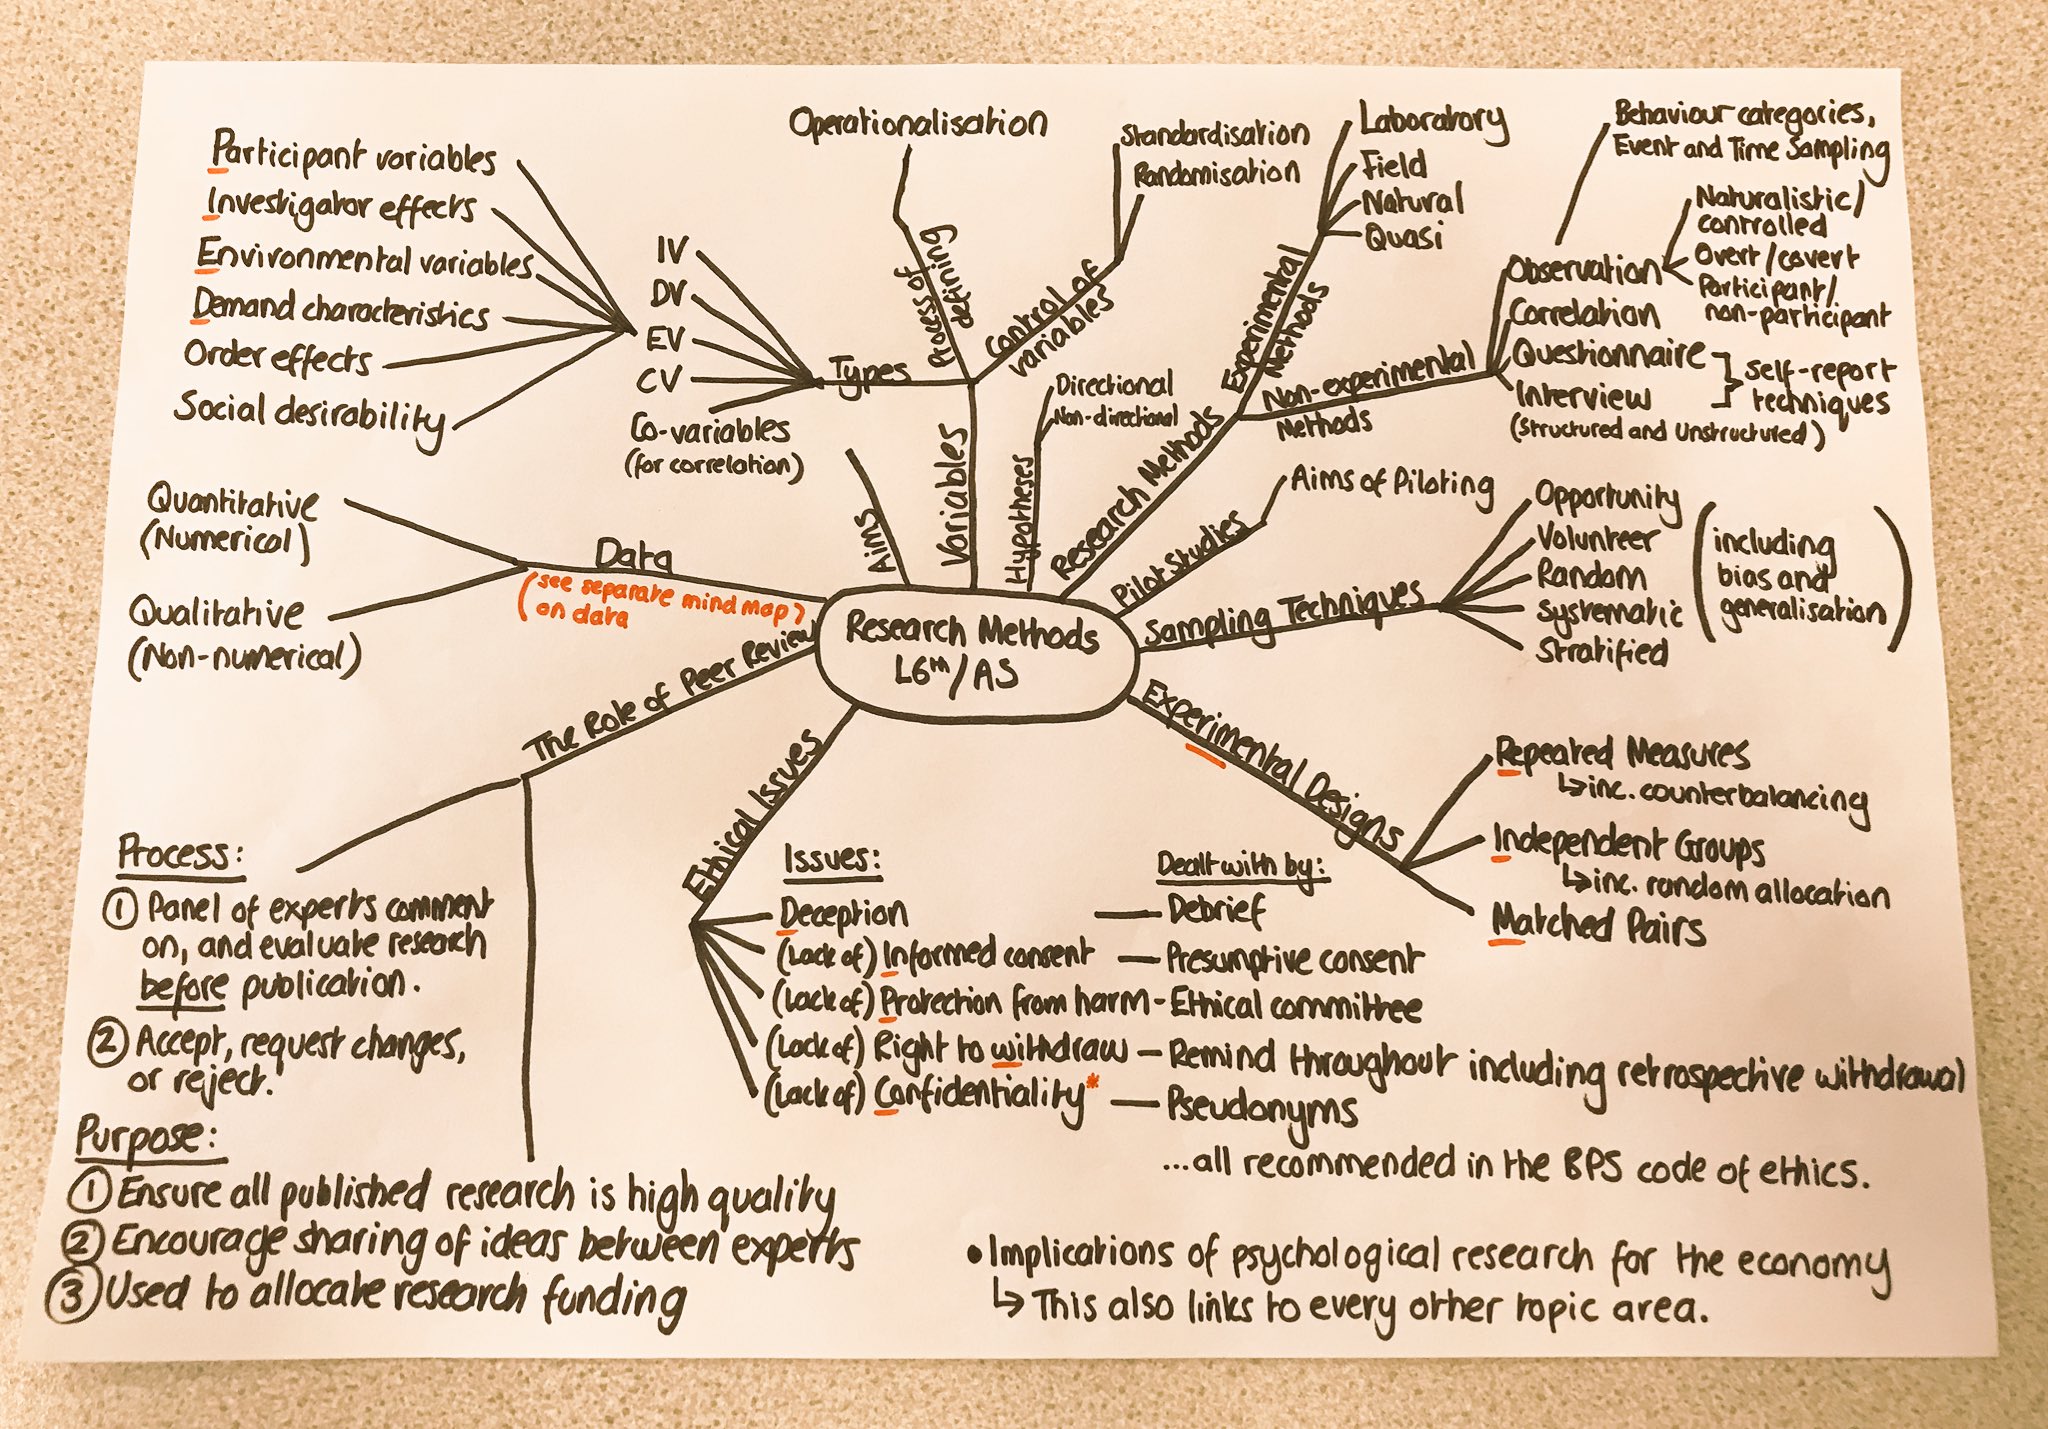 Research Methods
L6th/AS
Aims
Variables
Types
IV
DV
EV
CV
Co-variables
(for correlation)
Participant variables
Investigator effects
Environmental variables
Demand characteristics
Order effects
Social desirability
Process of
defining
Operationalisation
Control of
variables
Standardisation
Randomisation
Hypotheses
Directional
Non-directional
Research Methods
Experimental
Methods
Laboratory
Field
Natural
Quasi
Non-experimental
Methods
Observation
Behaviour categories,
Event and Time Sampling
Naturalistic/
controlled
Overt/covert
Participant/
non-participant
Correlation
Questionnaire
Interview
(Structured and Unstructured)
self-report
techniques
Pilot Studies
Aims of Piloting
Sampling Techniques
Opportunity
Volunteer
Random
Systematic
Stratified
(including
bias and
generalisation)
Experimental Designs
Repeated Measures
↳inc. counterbalancing
Independent Groups
↳inc. random allocation
Matched Pairs
Ethical Issues
Issues:
Dealt with by:
Deception — Debrief
(Lack of) Informed consent — Presumptive consent
(Lack of) Protection from harm - Ethical committee
(Lack of) Right to withdraw — Remind throughout including retrospective withdrawal
(Lack of) Confidentiality* — Pseudonyms
...all recommended in the BPS code of ethics.
The Role of Peer Review
Process:
① Panel of experts comment
on, and evaluate research
before publication.
② Accept, request changes,
or reject.
Purpose:
① Ensure all published research is high quality
② Encourage sharing of ideas between experts
③ Used to allocate research funding
Data
(see separate mind map)
on data
Quantitative
(Numerical)
Qualitative
(Non-numerical)
• Implications of psychological research for the economy
↳ This also links to every other topic area.